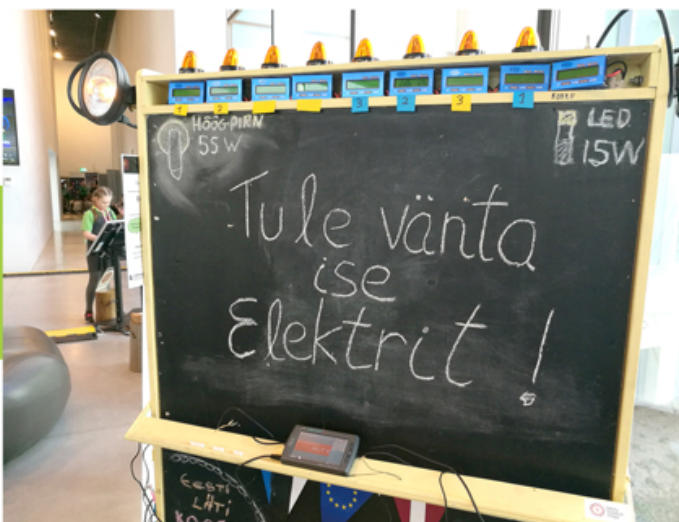 HÖÖG-PIRN
55 W
LED
15W
Tule vänta
ise
Elektrit !
EESTI
LÄTI